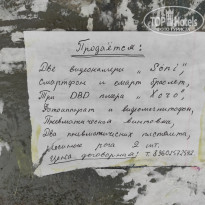 ТОП Hotels
Продаётся:
Две видеокамеры „Sani"
Смартфон и смарт браслет,
Три DBD плэера „
Фотоаппарат и видеомагнитофон,
Пневматическая винтовка,
Два пневматических пистолета,
рога 2 шт.
Цена договорная! т.